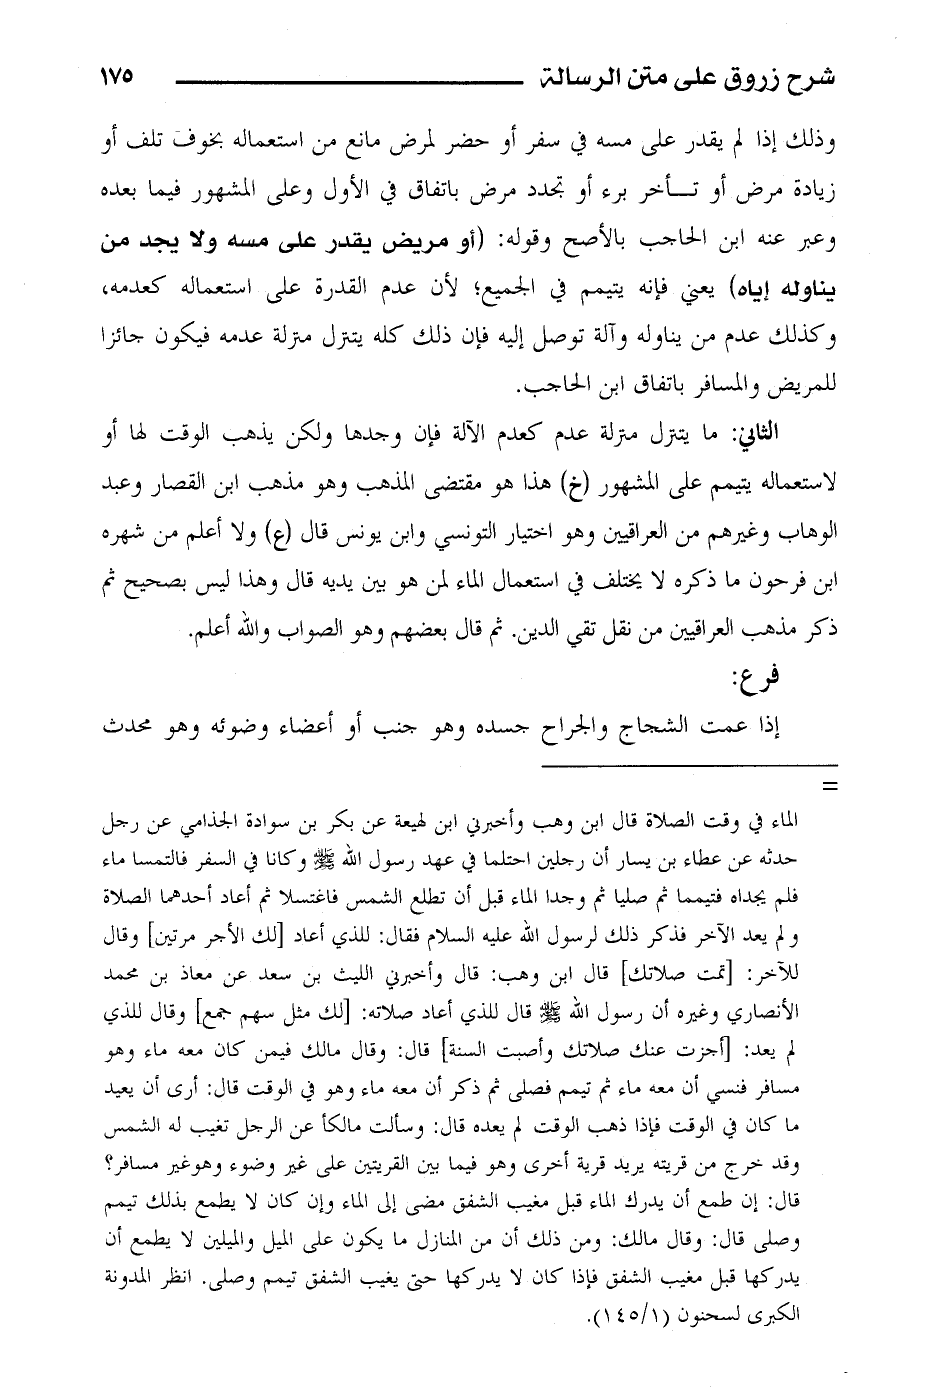 شرح زروق على متن الرسالة ١٧٥
وذلك إذا لم يقدر على مسه في سفر أو حضر لمرض مانع من استعماله بخوف تلف أو
زيادة مرض أو تـــأخر برء أو تجدد مرض باتفاق في الأول وعلى المشهور فيما بعده
وعبر عنه ابن الحاجب بالأصح وقوله: (أو مريض يقدر على مسه ولا يجد من
يناوله إياه) يعني فإنه يتيمم في الجميع؛ لأن عدم القدرة على استعماله كعدمه،
وكذلك عدم من يناوله وآلة توصل إليه فإن ذلك كله يتنزل منزلة عدمه فيكون جائزا
للمريض والمسافر باتفاق ابن الحاجب.
الثاني: ما يتنزل منزلة عدم كعدم الآلة فإن وجدها ولكن يذهب الوقت لها أو
لاستعماله يتيمم على المشهور (خ) هذا هو مقتضى المذهب وهو مذهب ابن القصار وعبد
الوهاب وغيرهم من العراقيين وهو اختيار التونسي وابن يونس قال (ع) ولا أعلم من شهره
ابن فرحون ما ذكره لا يختلف في استعمال الماء لمن هو بين يديه قال وهذا ليس بصحيح ثم
ذكر مذهب العراقيين من نقل تقي الدين. ثم قال بعضهم وهو الصواب والله أعلم.
فرع:
إذا عمت الشجاج والجراح جسده وهو جنب أو أعضاء وضوئه وهو محدث
=
الماء في وقت الصلاة قال ابن وهب وأخبرني ابن لهيعة عن بكر بن سوادة الجذامي عن رجل
حدثه عن عطاء بن يسار أن رجلين احتلما في عهد رسول الله ﷺ وكانا في السفر فالتمسا ماء
فلم يجداه فتيمما ثم صليا ثم وجدا الماء قبل أن تطلع الشمس فاغتسلا ثم أعاد أحدهما الصلاة
ولم يعد الآخر فذكر ذلك لرسول الله عليه السلام فقال: للذي أعاد [لك الأجر مرتين] وقال
للآخر: [تمت صلاتك] قال ابن وهب: قال وأخبرني الليث بن سعد عن معاذ بن محمد
الأنصاري وغيره أن رسول الله ﷺ قال للذي أعاد صلاته: [لك مثل سهم جمع] وقال للذي
لم يعد: [أجزت عنك صلاتك وأصبت السنة] قال: وقال مالك فيمن كان معه ماء وهو
مسافر فنسي أن معه ماء ثم تيمم فصلى ثم ذكر أن معه ماء وهو في الوقت قال: أرى أن يعيد
ما كان في الوقت فإذا ذهب الوقت لم يعده قال: وسألت مالكاً عن الرجل تغيب له الشمس
وقد خرج من قريته يريد قرية أخرى وهو فيما بين القريتين على غير وضوء وهوغير مسافر؟
قال: إن طمع أن يدرك الماء قبل مغيب الشفق مضى إلى الماء وإن كان لا يطمع بذلك تيمم
وصلى قال: وقال مالك: ومن ذلك أن من المنازل ما يكون على الميل والميلين لا يطمع أن
يدركها قبل مغيب الشفق فإذا كان لا يدركها حتى يغيب الشفق تيمم وصلى. انظر المدونة
الكبرى لسحنون (١٤٥/١).